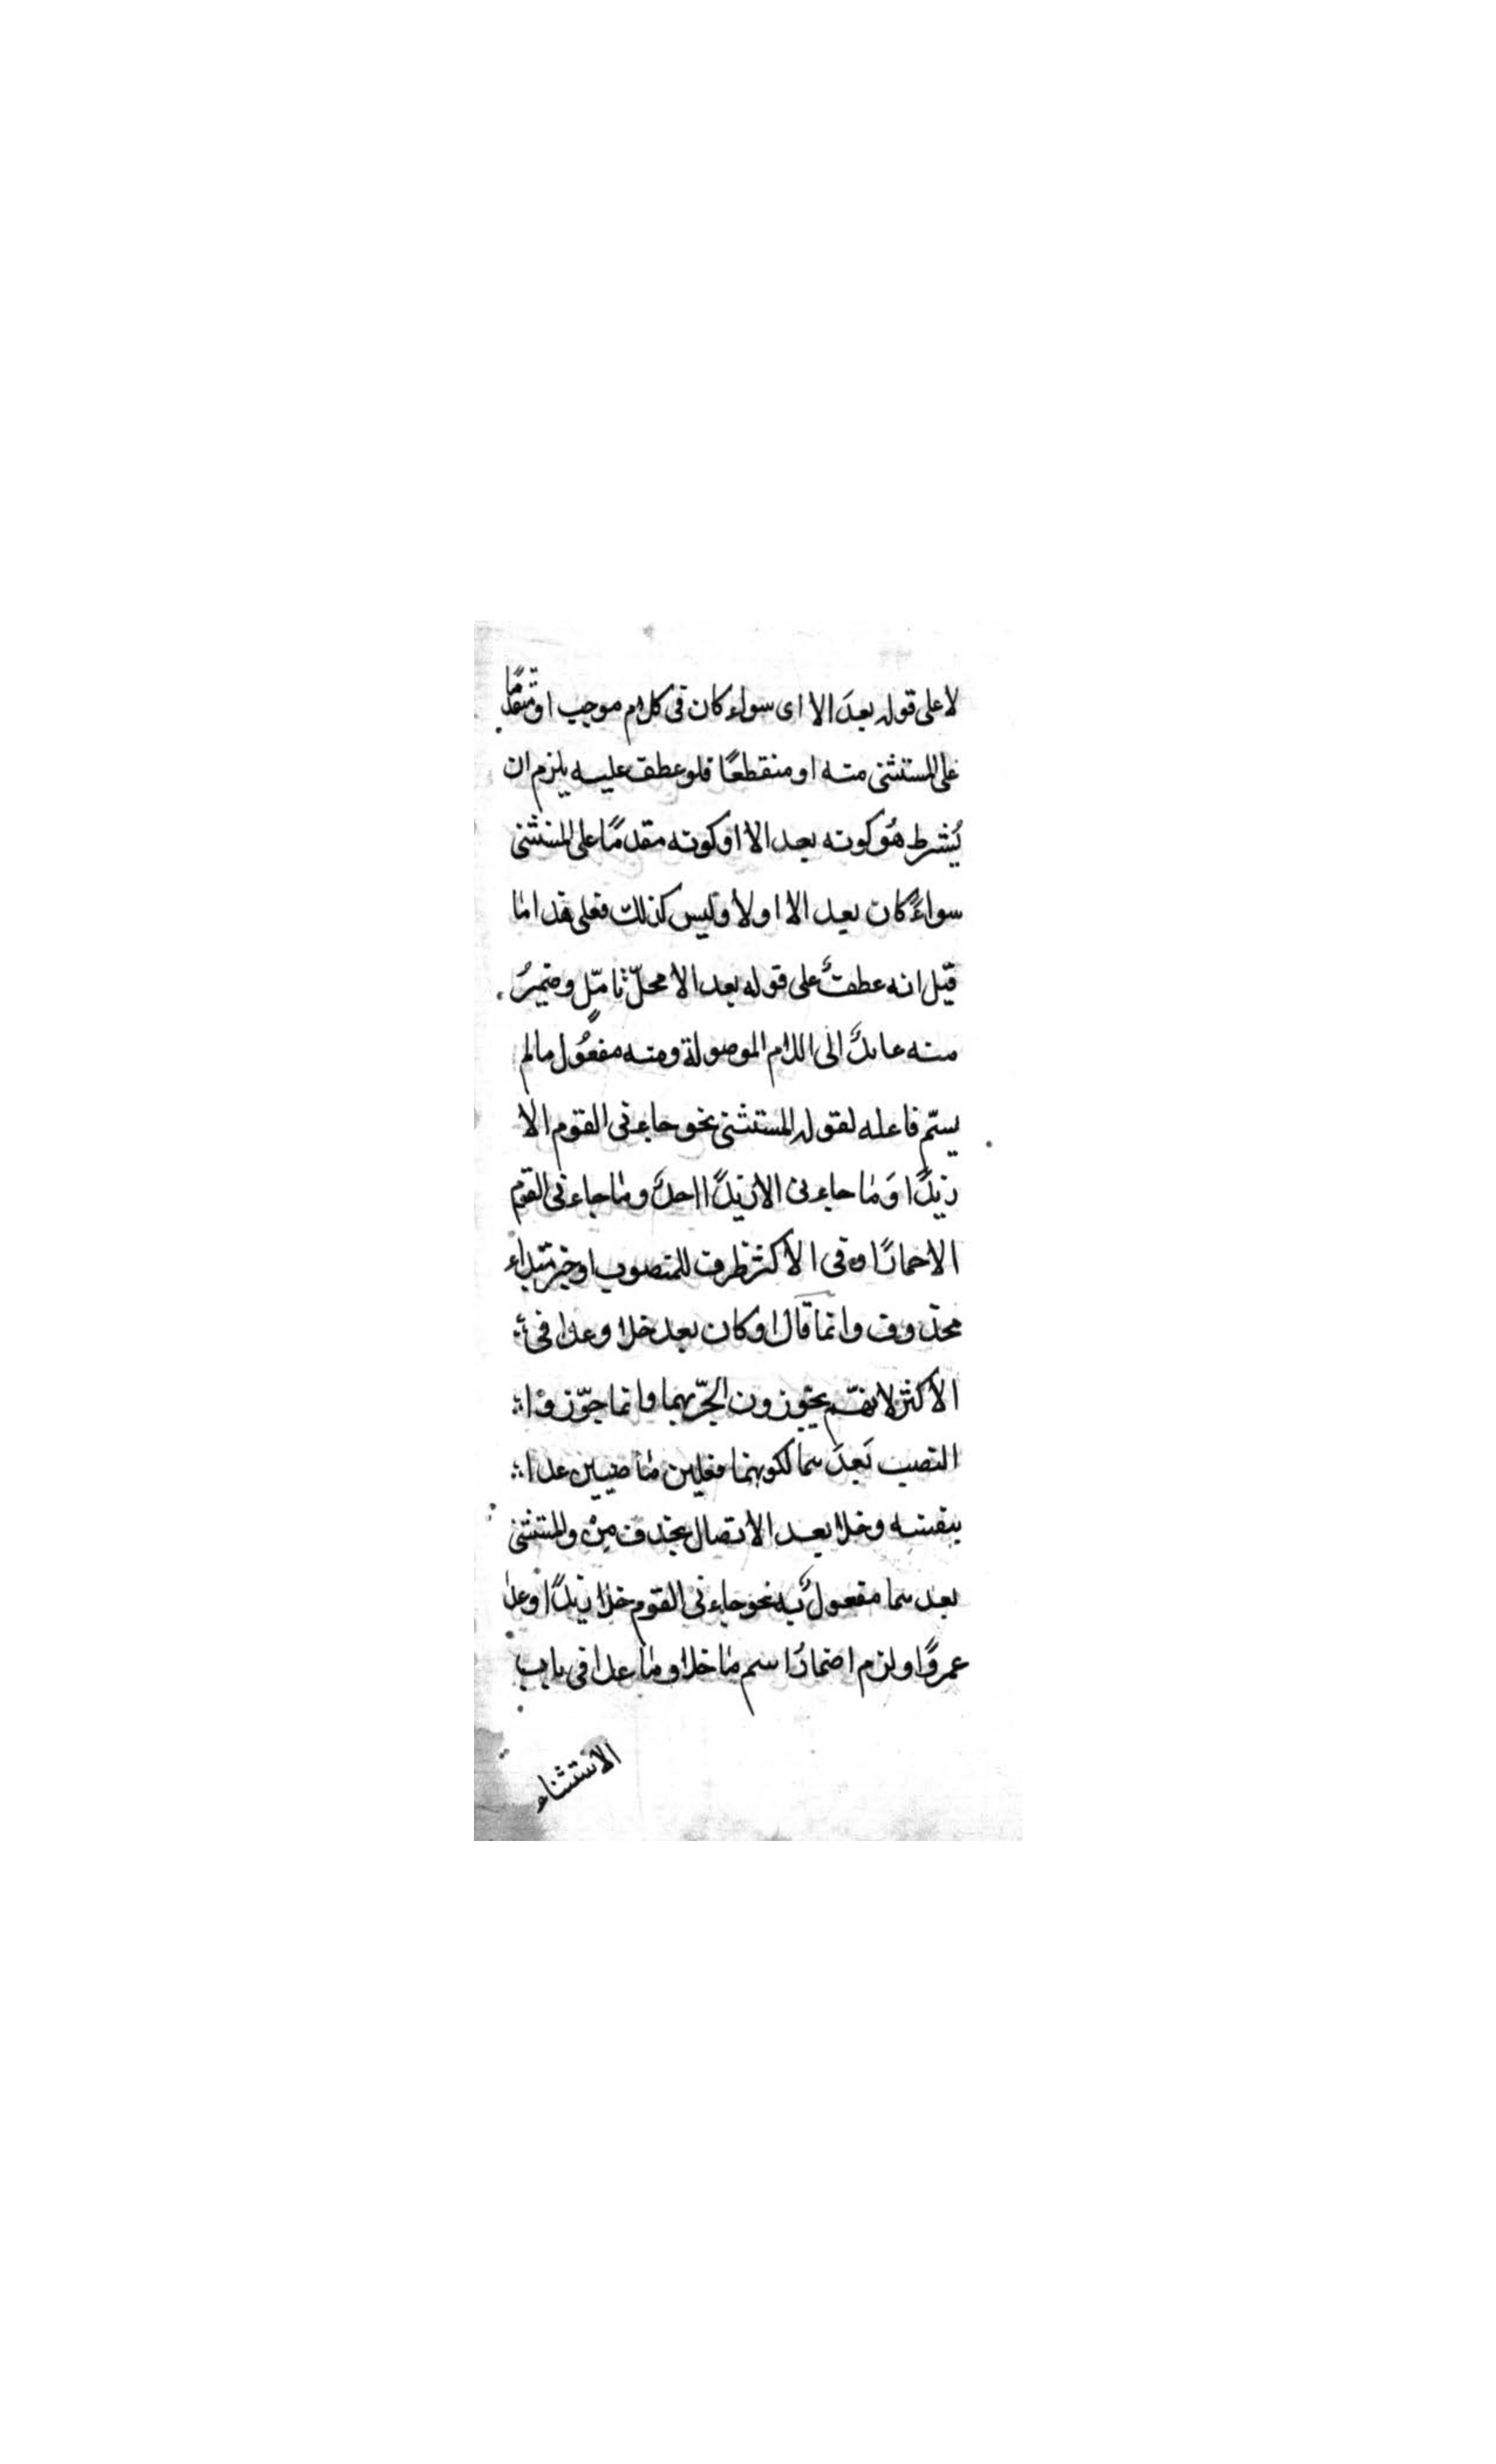 لا على قوله بعدَ الا اى سواء كان فى كلام موجب او متقدمًا
على المستثنى منه او منقطعًا فلو عطف عليه يلزم ان
يُشرط هُو كونه بعد الا او كونه مقدمًا على المستثنى
سواءً كان بعد الا اولا وليس كذلك فعلى هذا ما
قيل انه عطفٌ على قوله بعد الا محلّ تامّلٍ وضميرُ
منه عائدٌ الى اللام الموصولة ومنه مفعُول مالم
يسمّ فاعله لقوله المستثنى نحو جاءنى القوم الا
زيدًا وَما جاءنى الا زيدًا احدٌ وما جاءنى القوم
الا حمارًا وفى الاكثر ظرف للمنصوب او خبر مبتداء
محذوف وانما قال او كان بعد خلا وعدا فى
الاكثر لانهم يجوّزون الجرّ بهما وانما جوّزوْا
النصب بَعدَهما لكونهما فعلين ماضيين عدا
بنفسه وخلا بعد الاتصال بحذف مِنْ والمستثنى
بعدهما مفعولٌ به نحو جاءنى القوم خلا زيدًا وعدا
عمروًا ولزم اضمارُ اسم ما خلا وما عدا فى باب
الاستثناء